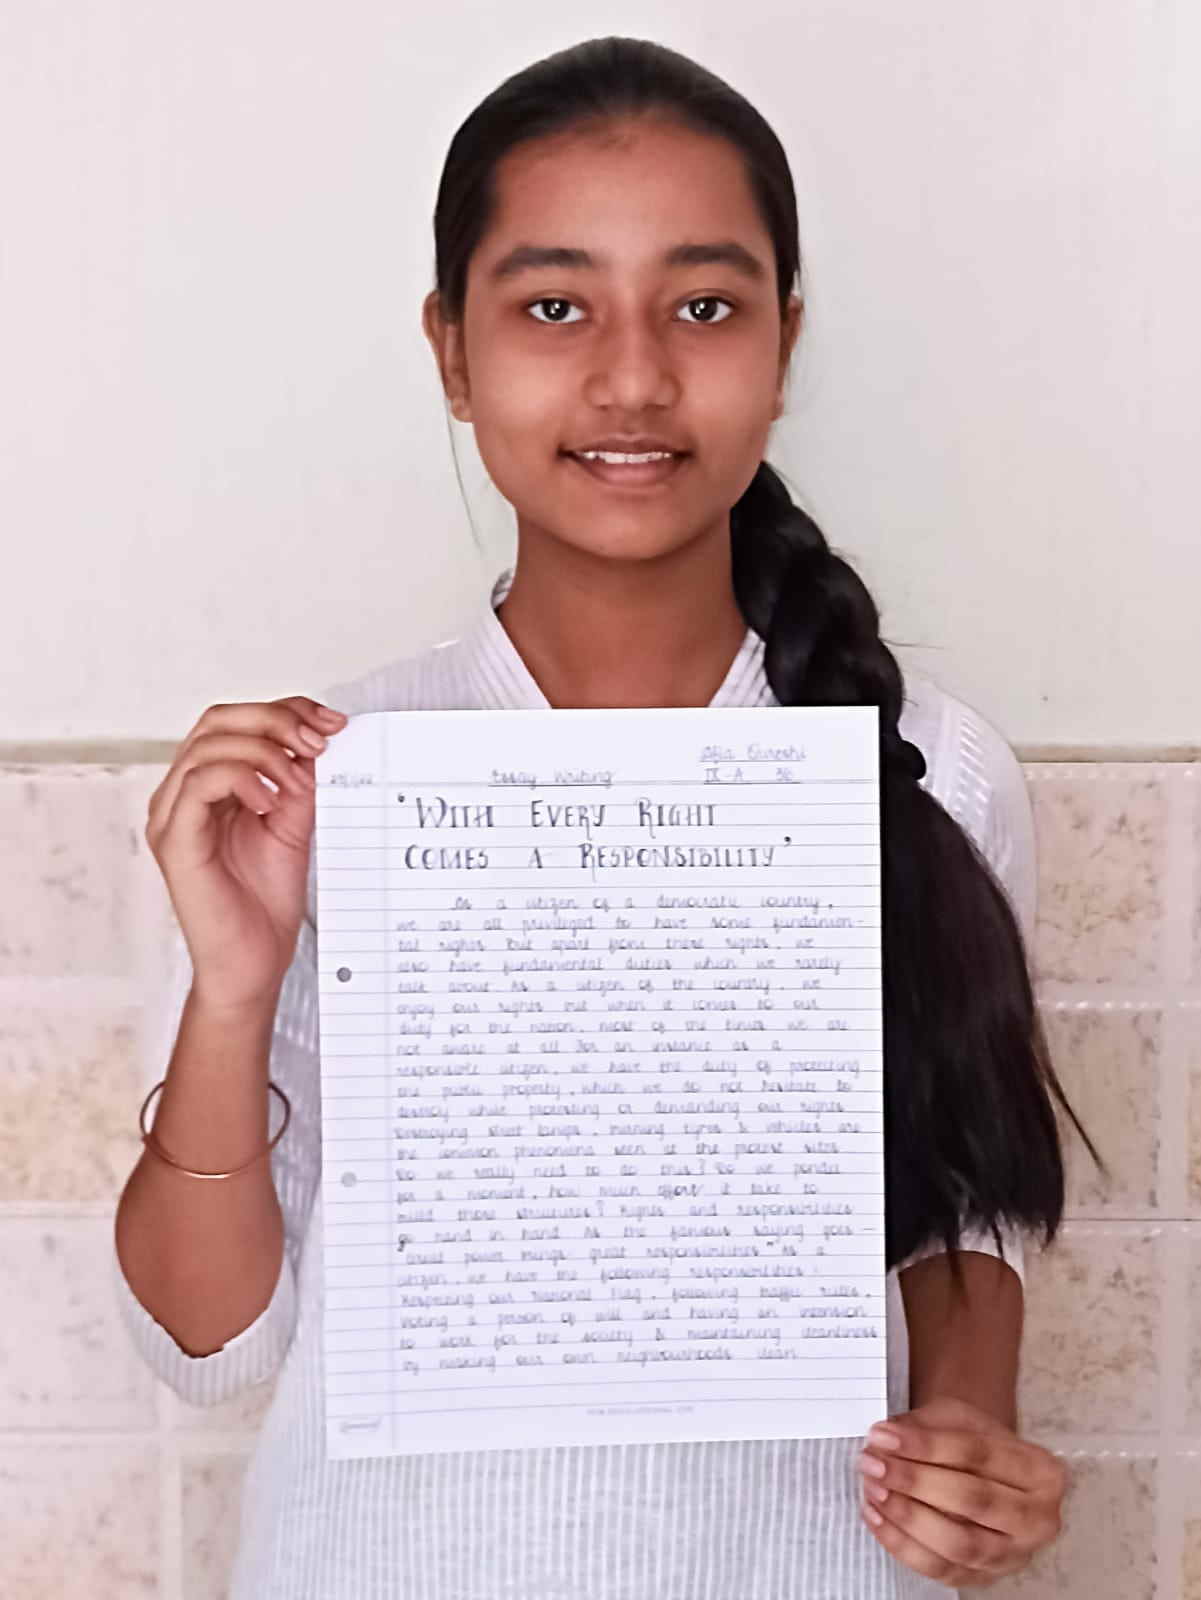 Afia Qureshi
Essay Writing IX-A 36
'WITH EVERY RIGHT
COMES A RESPONSIBILITY'
As a citizen of a democratic country,
we are all privileged to have some fundamen-
tal rights but apart from these rights, we
also have fundamental duties which we rarely
talk about. As a citizen of the country, we
enjoy our rights but when it comes to our
duty for the nation, most of the times we are
not aware at all. For an instance as a
responsible citizen, we have the duty of protecting
the public property, which we do not hesitate to
destroy while protesting or demanding our rights
Destroying street lamps, burning tyres & vehicles are
the common phenomena seen at the protest sites
Do we really need to do this? Do we ponder
for a moment, how much effort it take to
build those structures? Rights and responsibilities
go hand in hand. As the famous saying goes—
"Great power brings great responsibilities" As a
citizen, we have the following responsibilities:
Respecting our National Flag, following traffic rules,
voting a person of will and having an intension
to work for the society & maintaining cleanliness
by making our own neighbourhoods clean.